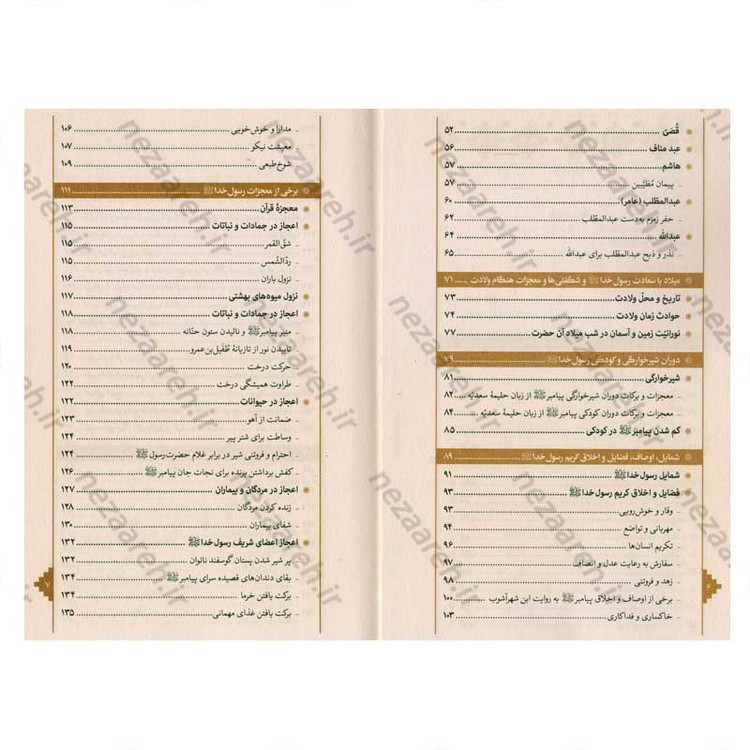 قُصَیّ ۵۲
عبد مناف ۵۶
هاشم ۵۷
پیمان مُطَیَّبین ۵۷
عبدالمطلب (عامر) ۶۰
حفر زمزم به‌دست عبدالمطلب ۶۲
عبدالله ۶۴
نذر و ذبح عبدالمطلب برای عبدالله ۶۵
میلاد با سعادت رسول خدا ﷺ و شگفتی‌ها و معجزات هنگام ولادت ۷۱
تاریخ و محل ولادت ۷۳
حوادث زمان ولادت ۷۴
نورانیّت زمین و آسمان در شب میلاد آن حضرت ۷۷
دوران شیرخوارگی و کودکی رسول خدا ﷺ
شیرخوارگی ۸۱
معجزات و برکات دوران شیرخوارگی پیامبر ﷺ از زبان حلیمهٔ سعدیّه ۸۲
معجزات و برکات دوران کودکی پیامبر ﷺ از زبان حلیمهٔ سعدیّه ۸۴
گم شدن پیامبر ﷺ در کودکی ۸۵
شمایل، اوصاف، فضایل و اخلاق کریم رسول خدا ﷺ ۸۹
شمایل رسول خدا ﷺ ۹۱
فضایل و اخلاق کریم رسول خدا ﷺ ۹۳
وقار و خوش‌رویی ۹۳
مهربانی و تواضع ۹۴
تکریم انسان‌ها ۹۶
سفارش به رعایت عدل و انصاف ۹۷
زهد و فروتنی ۹۸
برخی از اوصاف و اخلاق پیامبر ﷺ به روایت ابن شهرآشوب ۱۰۰
خاکساری و فداکاری ۱۰۳
مدارا و خوش‌خویی ۱۰۶
معیشت نیکو ۱۰۷
شوخ‌طبعی ۱۰۹
برخی از معجزات رسول خدا ﷺ ۱۱۱
معجزهٔ قرآن ۱۱۳
اعجاز در جمادات و نباتات ۱۱۵
شقّ‌القمر ۱۱۵
ردّالشّمس ۱۱۵
نزول باران ۱۱۶
نزول میوه‌های بهشتی ۱۱۷
اعجاز در جمادات و نباتات ۱۱۸
منبر پیامبر ﷺ و نالیدن ستون حنّانه ۱۱۸
تابیدن نور از تازیانهٔ طُفَیل‌بن‌عمرو ۱۱۹
حرکت درخت ۱۲۰
طراوت همیشگی درخت ۱۲۲
اعجاز در حیوانات ۱۲۲
ضمانت از آهو ۱۲۳
وساطت برای شتر پیر ۱۲۴
احترام و فروتنی شیر در برابر غلام حضرت رسول ﷺ ۱۲۴
کفش برداشتن پرنده برای نجات جان پیامبر ﷺ ۱۲۶
اعجاز در مردگان و بیماران ۱۲۷
زنده کردن مردگان ۱۲۸
شفای بیماران ۱۳۰
اعجاز اعضای شریف رسول خدا ﷺ ۱۳۲
پر شیر شدن پستان گوسفند ناتوان ۱۳۲
بقای دندان‌های قصیده سرای پیامبر ﷺ ۱۳۴
برکت یافتن خرما ۱۳۴
برکت یافتن غذای مهمانی ۱۳۵
nezaareh.ir